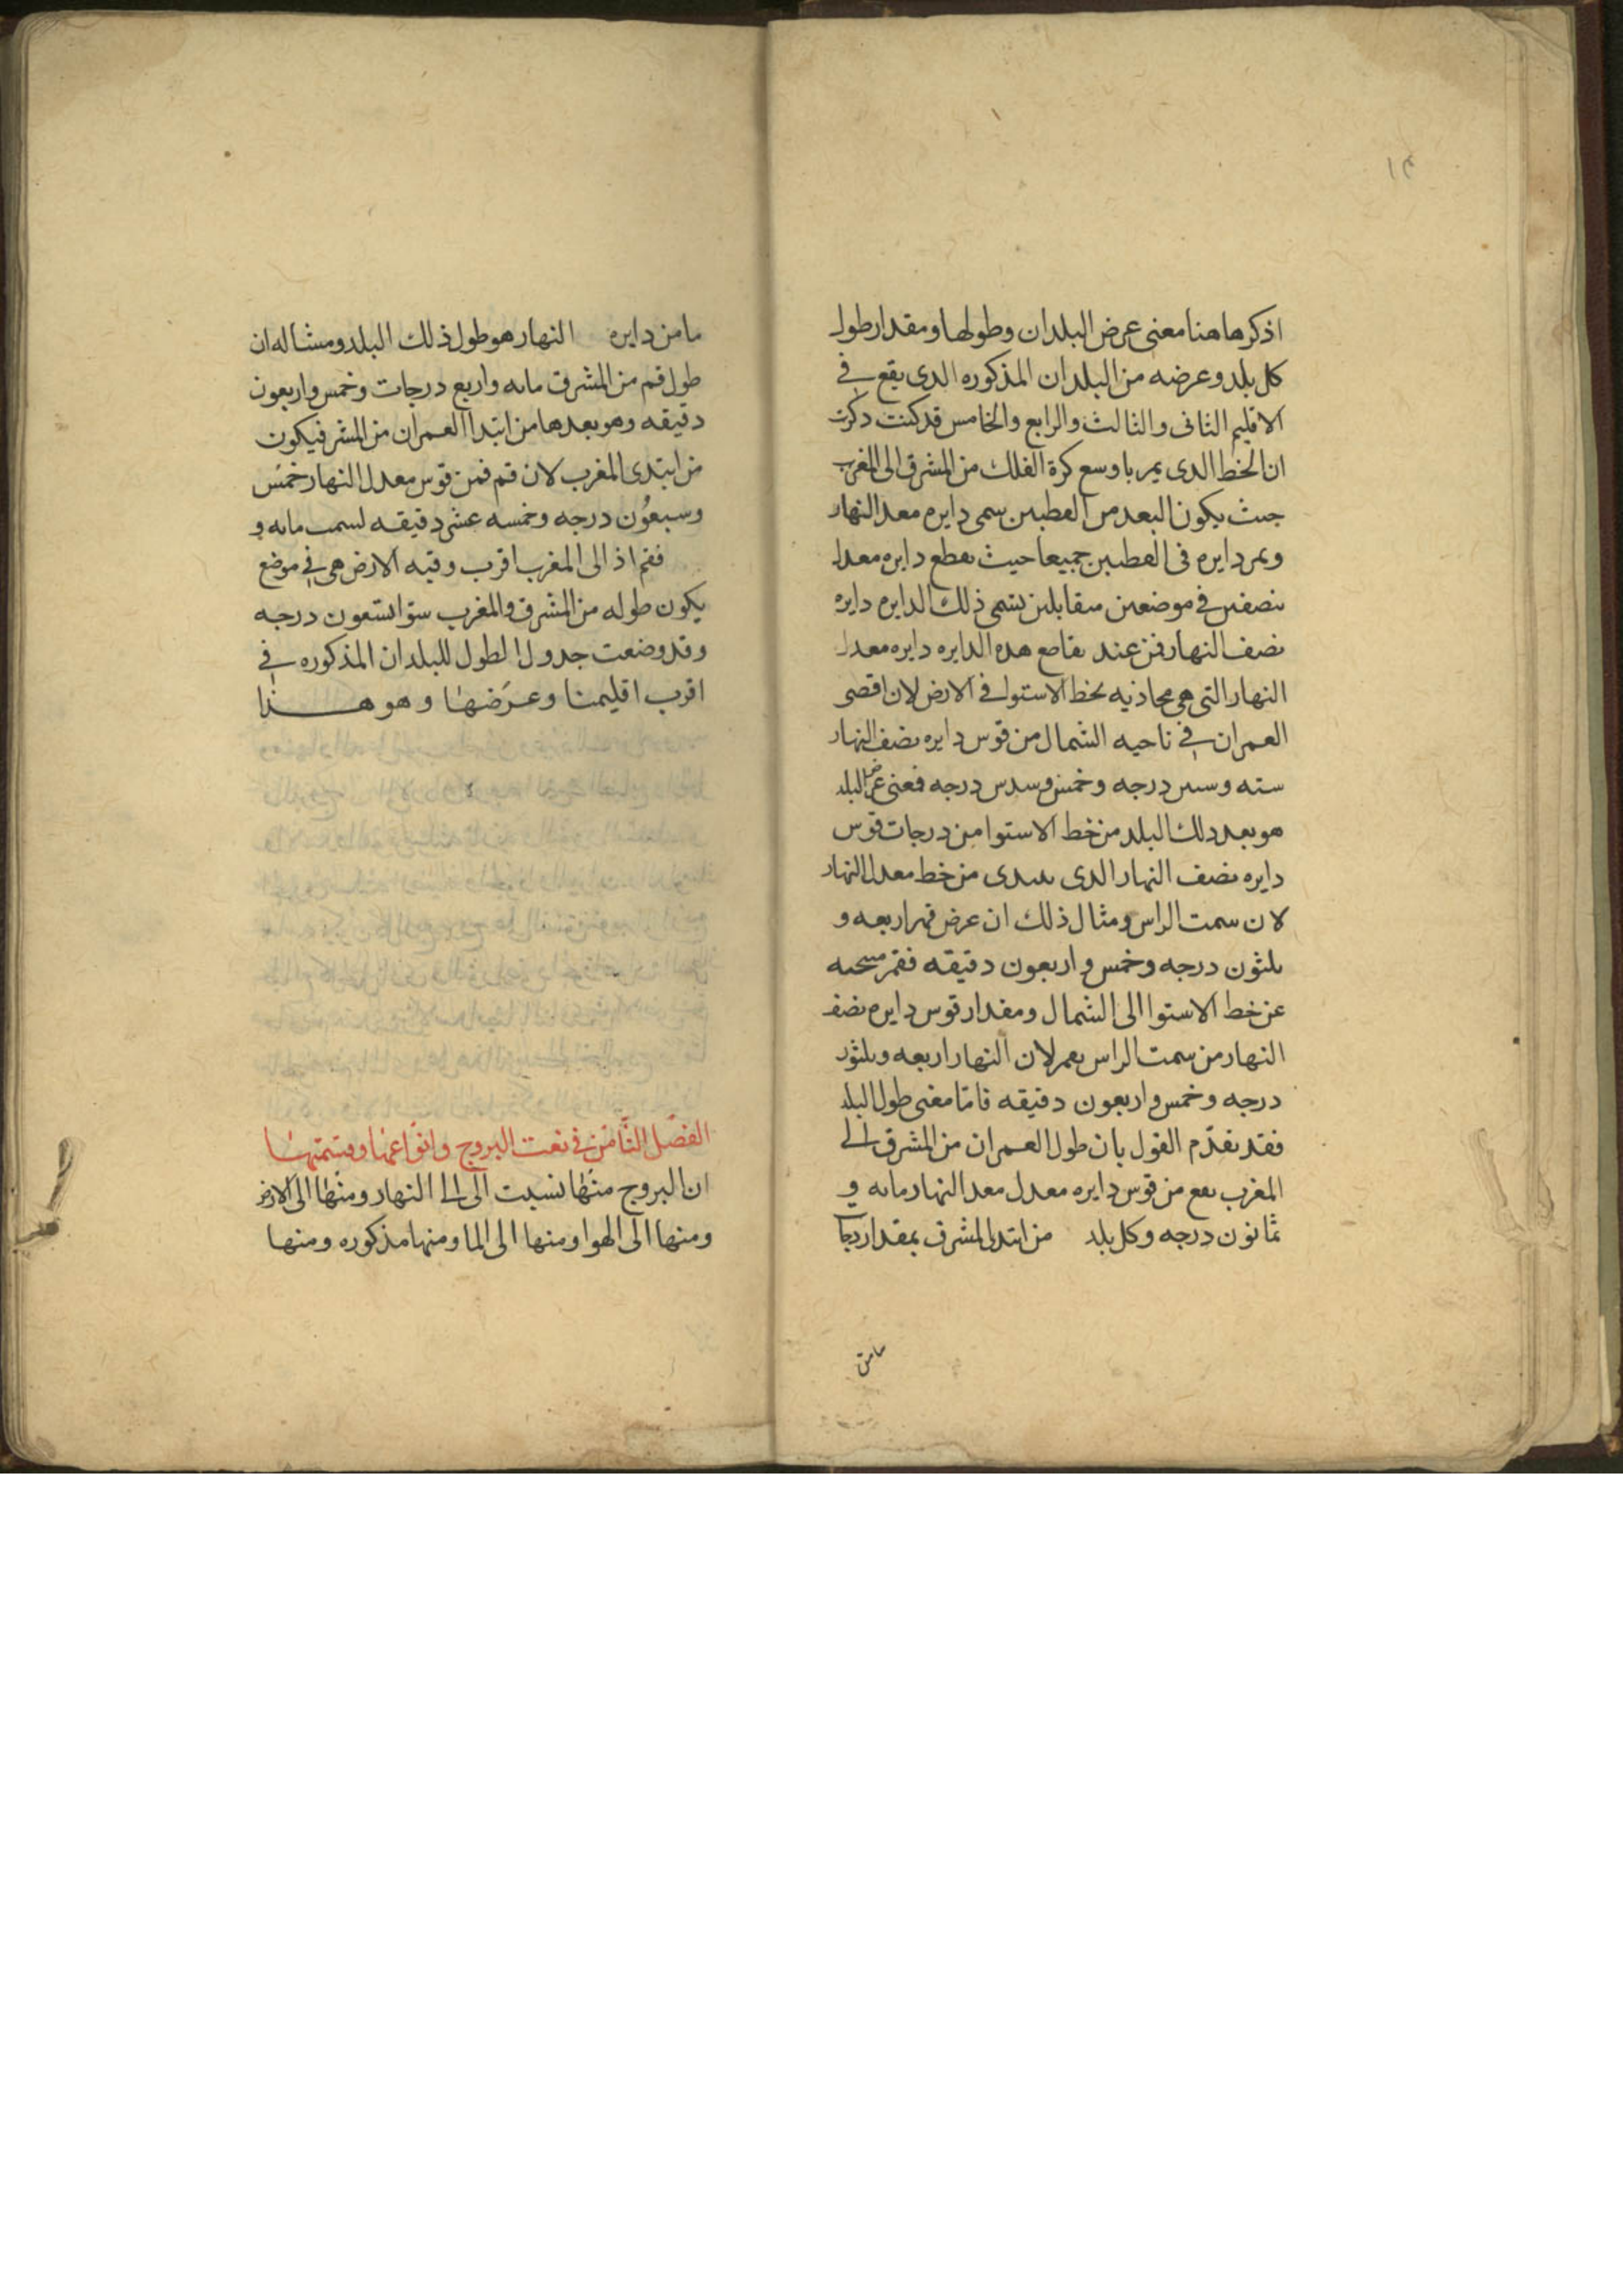 اذكر هاهنا معنى عرض البلدان وطولها ومقدار طول
كل بلد وعرضه من البلدان المذكوره الدى يقع فى
الاقليم الثانى والثالث والرابع والخامس قد كنت ذكرت
ان الخط الدى يمر باوسع كرة الفلك من المشرق الى المغرب
حيث يكون البعد من القطبين سمى دايره معدل النهار
ويمر دايره فى القطبين جميعا حيث يقطع دايره معدل
بنصفين فى موضعين متقابلين يسمى ذلك الدايره دايره
نصف النهار فمن عند تقاطع هده الدايره دايره معدل
النهار التى هى محاذيه لخط الاستوا فى الارض لان اقصى
العمران فى ناحيه الشمال من قوس دايره نصف النهار
سته وستين درجه وخمس وسدس درجه فمعنى عرض البلد
هو بعد دلك البلد من خط الاستوا من درجات قوس
دايره نصف النهار الدى يبتدى من خط معدل النهار
لان سمت الراس ومثال ذلك ان عرض قم اربعه و
ثلثون درجه وخمس واربعون دقيقه فقم
عن خط الاستوا الى الشمال ومقدار قوس دايره نصف
النهار من سمت الراس لان النهار اربعه وثلثون
درجه وخمس واربعون دقيقه فاما معنى طول البلد
فقد تقدّم القول بان طول العمران من المشرق الى
المغرب يقع من قوس دايره معدل معد النهار مايه و
ثمانون درجه وكل بلد من ابتدى المشرق بمقدار درجات
مامن
مامن دايره النهار هو طول ذلك البلد ومثاله ان
طول قم من المشرق مايه واربع درجات وخمس واربعون
دقيقه وهو بعدها من ابتدا العمران من المشرق فيكون
من ابتدى المغرب لان قم فمن قوس معدل النهار خمس
وسبعون درجه وخمسه عشر دقيقه مايه و
فقم اذ الى المغرب اقرب وقبه الارض هى فى موضع
يكون طوله من المشرق والمغرب سوا تسعون درجه
وقد وضعت جدول الطول للبلدان المذكوره فى
اقرب اقليمنا وعرضها وهو هذا
الفصل الثامن فى نعت البروج وانواعها وقسمتها
ان البروج منها نسبت الى الى النهار ومنها الى الارض
ومنها الى الهوا ومنها الى الما ومنها مذكوره ومنها